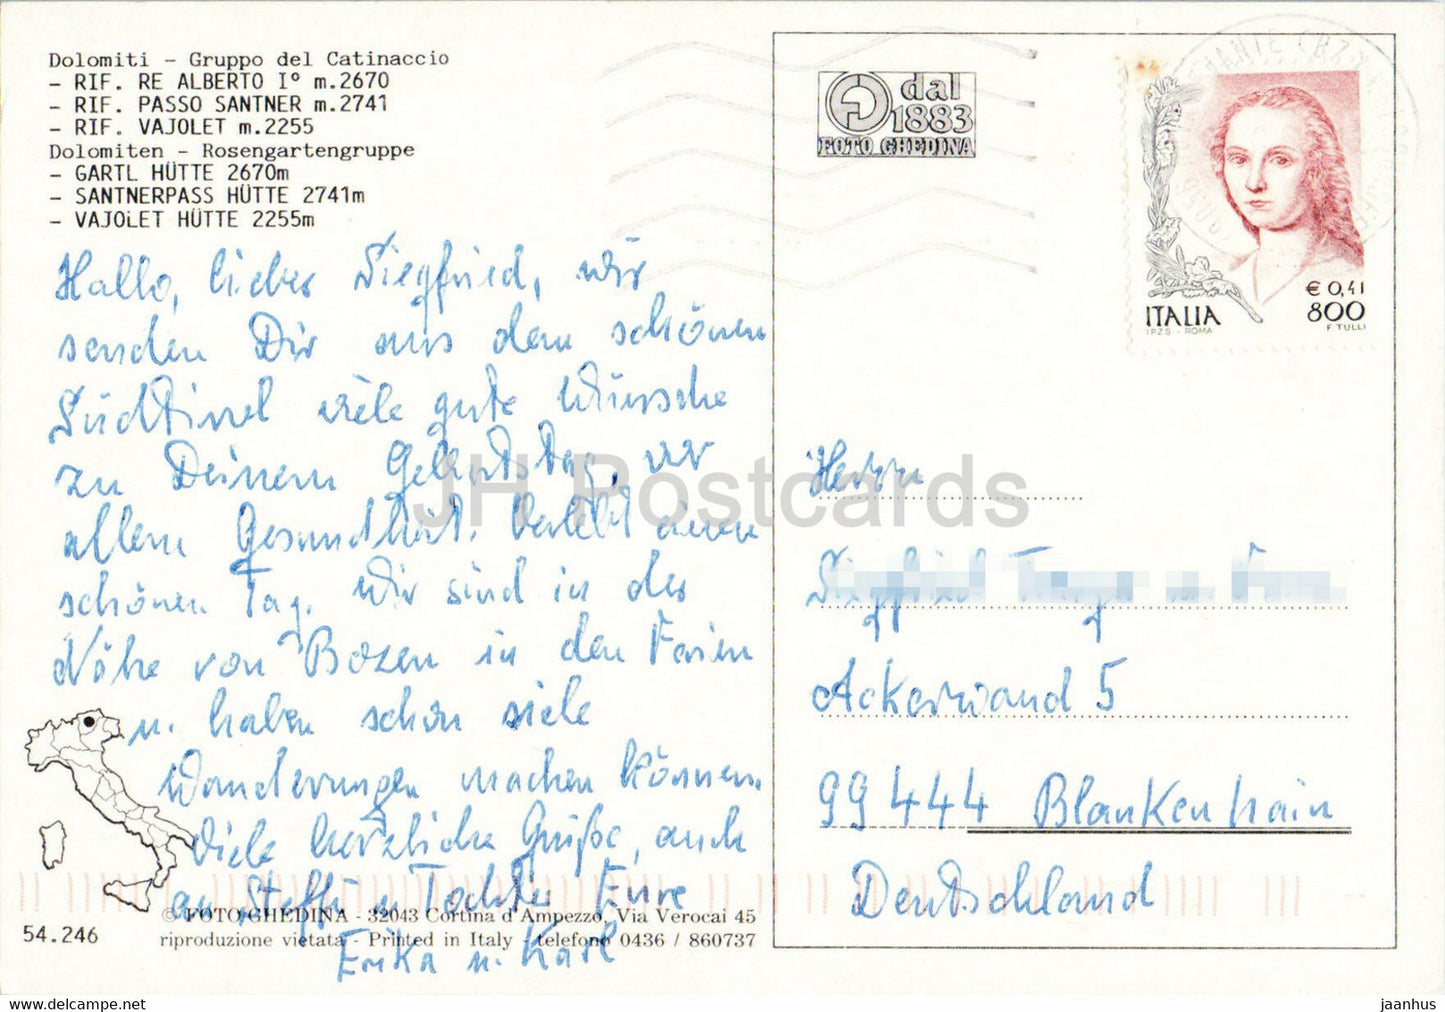 Dolomiti - Gruppo del Catinaccio
- RIF. RE ALBERTO I° m.2670
- RIF. PASSO SANTNER m.2741
- RIF. VAJOLET m.2255
Dolomiten - Rosengartengruppe
- GARTL HÜTTE 2670m
- SANTNERPASS HÜTTE 2741m
- VAJOLET HÜTTE 2255m
Hallo, lieber Siegfried, wir
senden Dir aus dem schönen
Südtirol viele gute Wünsche
zu Deinem Geburtstag, vor
allem Gesundheit. Verlebt einen
schönen Tag. Wir sind in der
Nähe von Bozen in den Ferien
u. haben schon viele
Wanderungen machen können.
Viele herzliche Grüße, auch
an Steffi u. Tochter Eure
Erika u. Karl
© FOTO GHEDINA - 32043 Cortina d'Ampezzo, Via Verocai 45
riproduzione vietata - Printed in Italy - telefono 0436 / 860737
54.246
dal
1883
FOTO GHEDINA
ITALIA
I.P.Z.S. - ROMA
€ 0,41
800
F. TULLI
Herrn
Siegfried
Ackerwand 5
99444 Blankenhain
Deutschland
JH Postcards
www.delcampe.net
jaanhus